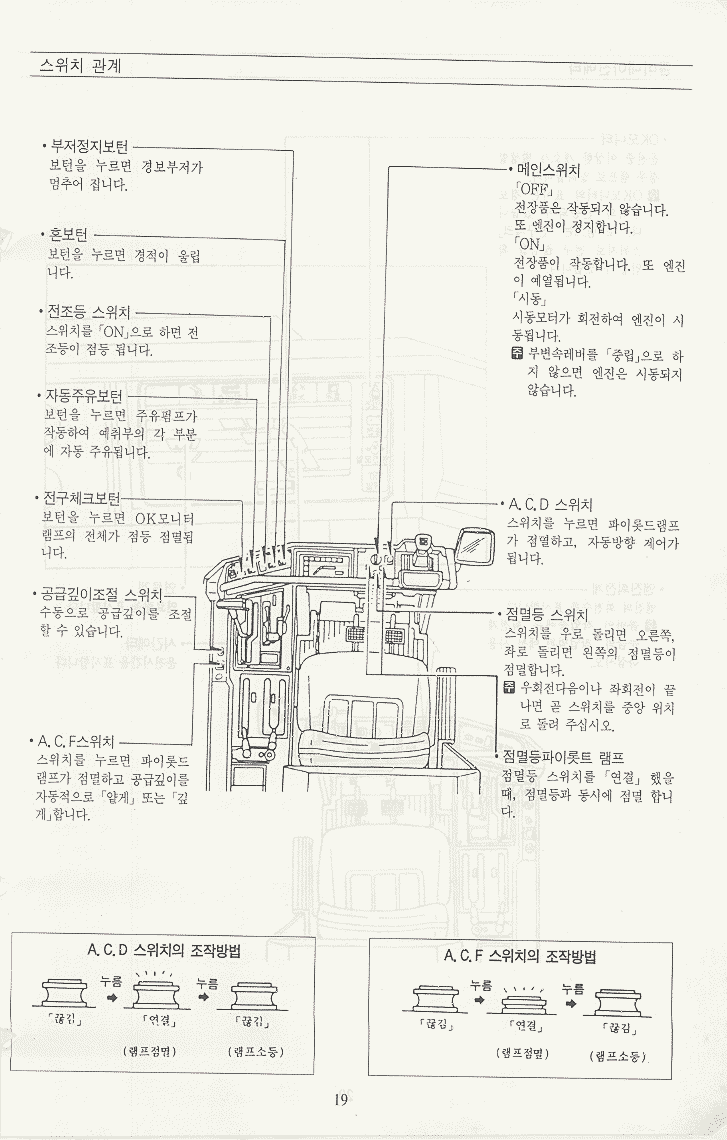 스위치 관계
• 부저정지보턴
보턴을 누르면 경보부저가
멈추어 집니다.
• 혼보턴
보턴을 누르면 경적이 울립
니다.
• 전조등 스위치
스위치를 「ON」으로 하면 전
조등이 점등 됩니다.
• 자동주유보턴
보턴을 누르면 주유펌프가
작동하여 예취부의 각 부분
에 자동 주유됩니다.
• 전구체크보턴
보턴을 누르면 OK모니터
램프의 전체가 점등 점멸됩
니다.
• 공급깊이조절 스위치
수동으로 공급깊이를 조절
할 수 있습니다.
• A.C.F스위치
스위치를 누르면 파이롯드
램프가 점멸하고 공급깊이를
자동적으로 「얕게」 또는 「깊
게」합니다.
• 메인스위치
「OFF」
전장품은 작동되지 않습니다.
또 엔진이 정지합니다.
「ON」
전장품이 작동합니다. 또 엔진
이 예열됩니다.
「시동」
시동모터가 회전하여 엔진이 시
동됩니다.
주 부변속레버를 「중립」으로 하
지 않으면 엔진은 시동되지
않습니다.
• A.C.D 스위치
스위치를 누르면 파이롯드램프
가 점열하고, 자동방향 제어가
됩니다.
• 점멸등 스위치
스위치를 우로 돌리면 오른쪽,
좌로 돌리면 왼쪽의 점멸등이
점멸합니다.
주 우회전다음이나 좌회전이 끝
나면 곧 스위치를 중앙 위치
로 돌려 주십시오.
• 점멸등파이롯트 램프
점멸등 스위치를 「연결」 했을
때, 점멸등과 동시에 점멸 합니
다.
A.C.D 스위치의 조작방법
누름 누름
「끊김」 「연결」 「끊김」
(램프점멸) (램프소등)
A.C.F 스위치의 조작방법
누름 누름
「끊김」 「연결」 「끊김」
(램프점멸) (램프소등)
19